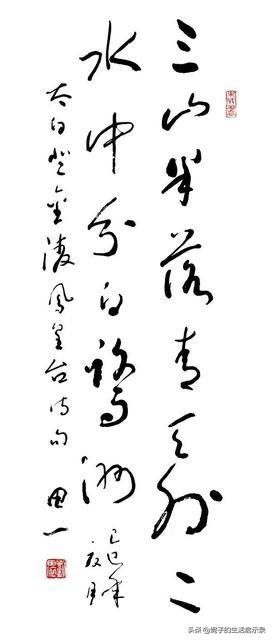 三山半落青天外二
水中分白鹭洲
己巳年
夏月
太白登金陵凤皇台诗句
头条 @子的生活启示录